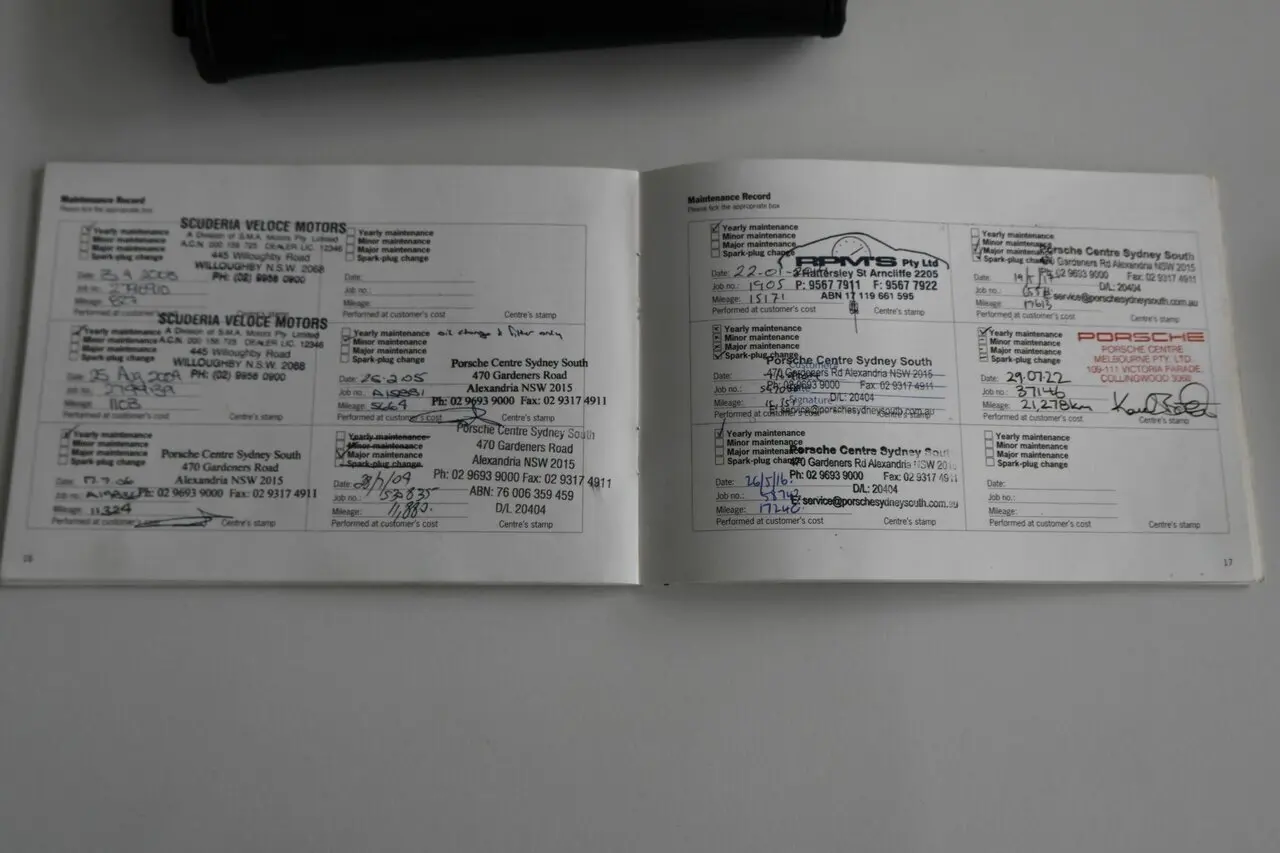 Maintenance Record
Please tick the appropriate box
Yearly maintenance
Minor maintenance
Major maintenance
Spark-plug change
SCUDERIA VELOCE MOTORS
A Division of S.M.A. Motors Pty. Limited
A.C.N. 000 158 723 DEALER LIC. 12346
445 Willoughby Road
WILLOUGHBY N.S.W. 2068
PH: (02) 9958 0900
Date:
Job no.:
Mileage: 827
Performed at customer's cost
Yearly maintenance
Minor maintenance
Major maintenance
Spark-plug change
Date:
Job no.:
Mileage:
Performed at customer's cost
Centre's stamp
Yearly maintenance
Minor maintenance
Major maintenance
Spark-plug change
SCUDERIA VELOCE MOTORS
A Division of S.M.A. Motors Pty. Limited
A.C.N. 000 158 723 DEALER LIC. 12346
445 Willoughby Road
WILLOUGHBY N.S.W. 2068
PH: (02) 9958 0900
Date: 25 Aug 2004
Job no.:
Mileage: 1103
Performed at customer's cost
Centre's stamp
Yearly maintenance
Minor maintenance
Major maintenance
Spark-plug change
oil change & filter only
Porsche Centre Sydney South
470 Gardeners Road
Alexandria NSW 2015
Ph: 02 9693 9000 Fax: 02 9317 4911
Date: 26-2-05
Job no.: A15881
Mileage: 5664
Performed at customer's cost
Centre's stamp
Yearly maintenance
Minor maintenance
Major maintenance
Spark-plug change
Porsche Centre Sydney South
470 Gardeners Road
Alexandria NSW 2015
Ph: 02 9693 9000 Fax: 02 9317 4911
Date: 17.7.06
Job no.:
Mileage: 11324
Performed at customer's cost
Centre's stamp
Yearly maintenance
Minor maintenance
Major maintenance
Spark-plug change
Porsche Centre Sydney South
470 Gardeners Road
Alexandria NSW 2015
Ph: 02 9693 9000 Fax: 02 9317 4911
ABN: 76 006 359 459
D/L 20404
Date: 28/1/09
Job no.: 53835
Mileage: 11,880.
Performed at customer's cost
Centre's stamp
16
Maintenance Record
Please tick the appropriate box
Yearly maintenance
Minor maintenance
Major maintenance
Spark-plug change
RPM'S Pty Ltd
Hattersley St Arncliffe 2205
P: 9567 7911 F: 9567 7922
ABN 17 119 661 595
Date: 22-01-
Job no.: 1905
Mileage: 15171
Performed at customer's cost
Centre's stamp
Yearly maintenance
Minor maintenance
Major maintenance
Spark-plug change
Porsche Centre Sydney South
Gardeners Rd Alexandria NSW 2015
02 9693 9000 Fax: 02 9317 4911
D/L: 20404
service@porschesydneysouth.com.au
Date:
Job no.:
Mileage: 17613
Performed at customer's cost
Centre's stamp
Yearly maintenance
Minor maintenance
Major maintenance
Spark-plug change
Porsche Centre Sydney South
470 Gardeners Rd Alexandria NSW 2015
Ph: 02 9693 9000 Fax: 02 9317 4911
D/L: 20404
E: service@porschesydneysouth.com.au
Customer
Signature
Date:
Job no.:
Mileage:
Performed at customer's cost
Yearly maintenance
Minor maintenance
Major maintenance
Spark-plug change
PORSCHE
PORSCHE CENTRE
MELBOURNE PTY. LTD.
109-111 VICTORIA PARADE,
COLLINGWOOD 3066
Date: 29.07.22
Job no.: 37146
Mileage: 21,278km
Performed at customer's cost
Centre's stamp
Yearly maintenance
Minor maintenance
Major maintenance
Spark-plug change
Porsche Centre Sydney Sout
470 Gardeners Rd Alexandria NSW 201
Ph: 02 9693 9000 Fax: 02 9317 4911
D/L: 20404
E: service@porschesydneysouth.com.au
Date: 26/5/16.
Job no.: 58742
Mileage: 17240.
Performed at customer's cost
Centre's stamp
Yearly maintenance
Minor maintenance
Major maintenance
Spark-plug change
Date:
Job no.:
Mileage:
Performed at customer's cost
Centre's stamp
17